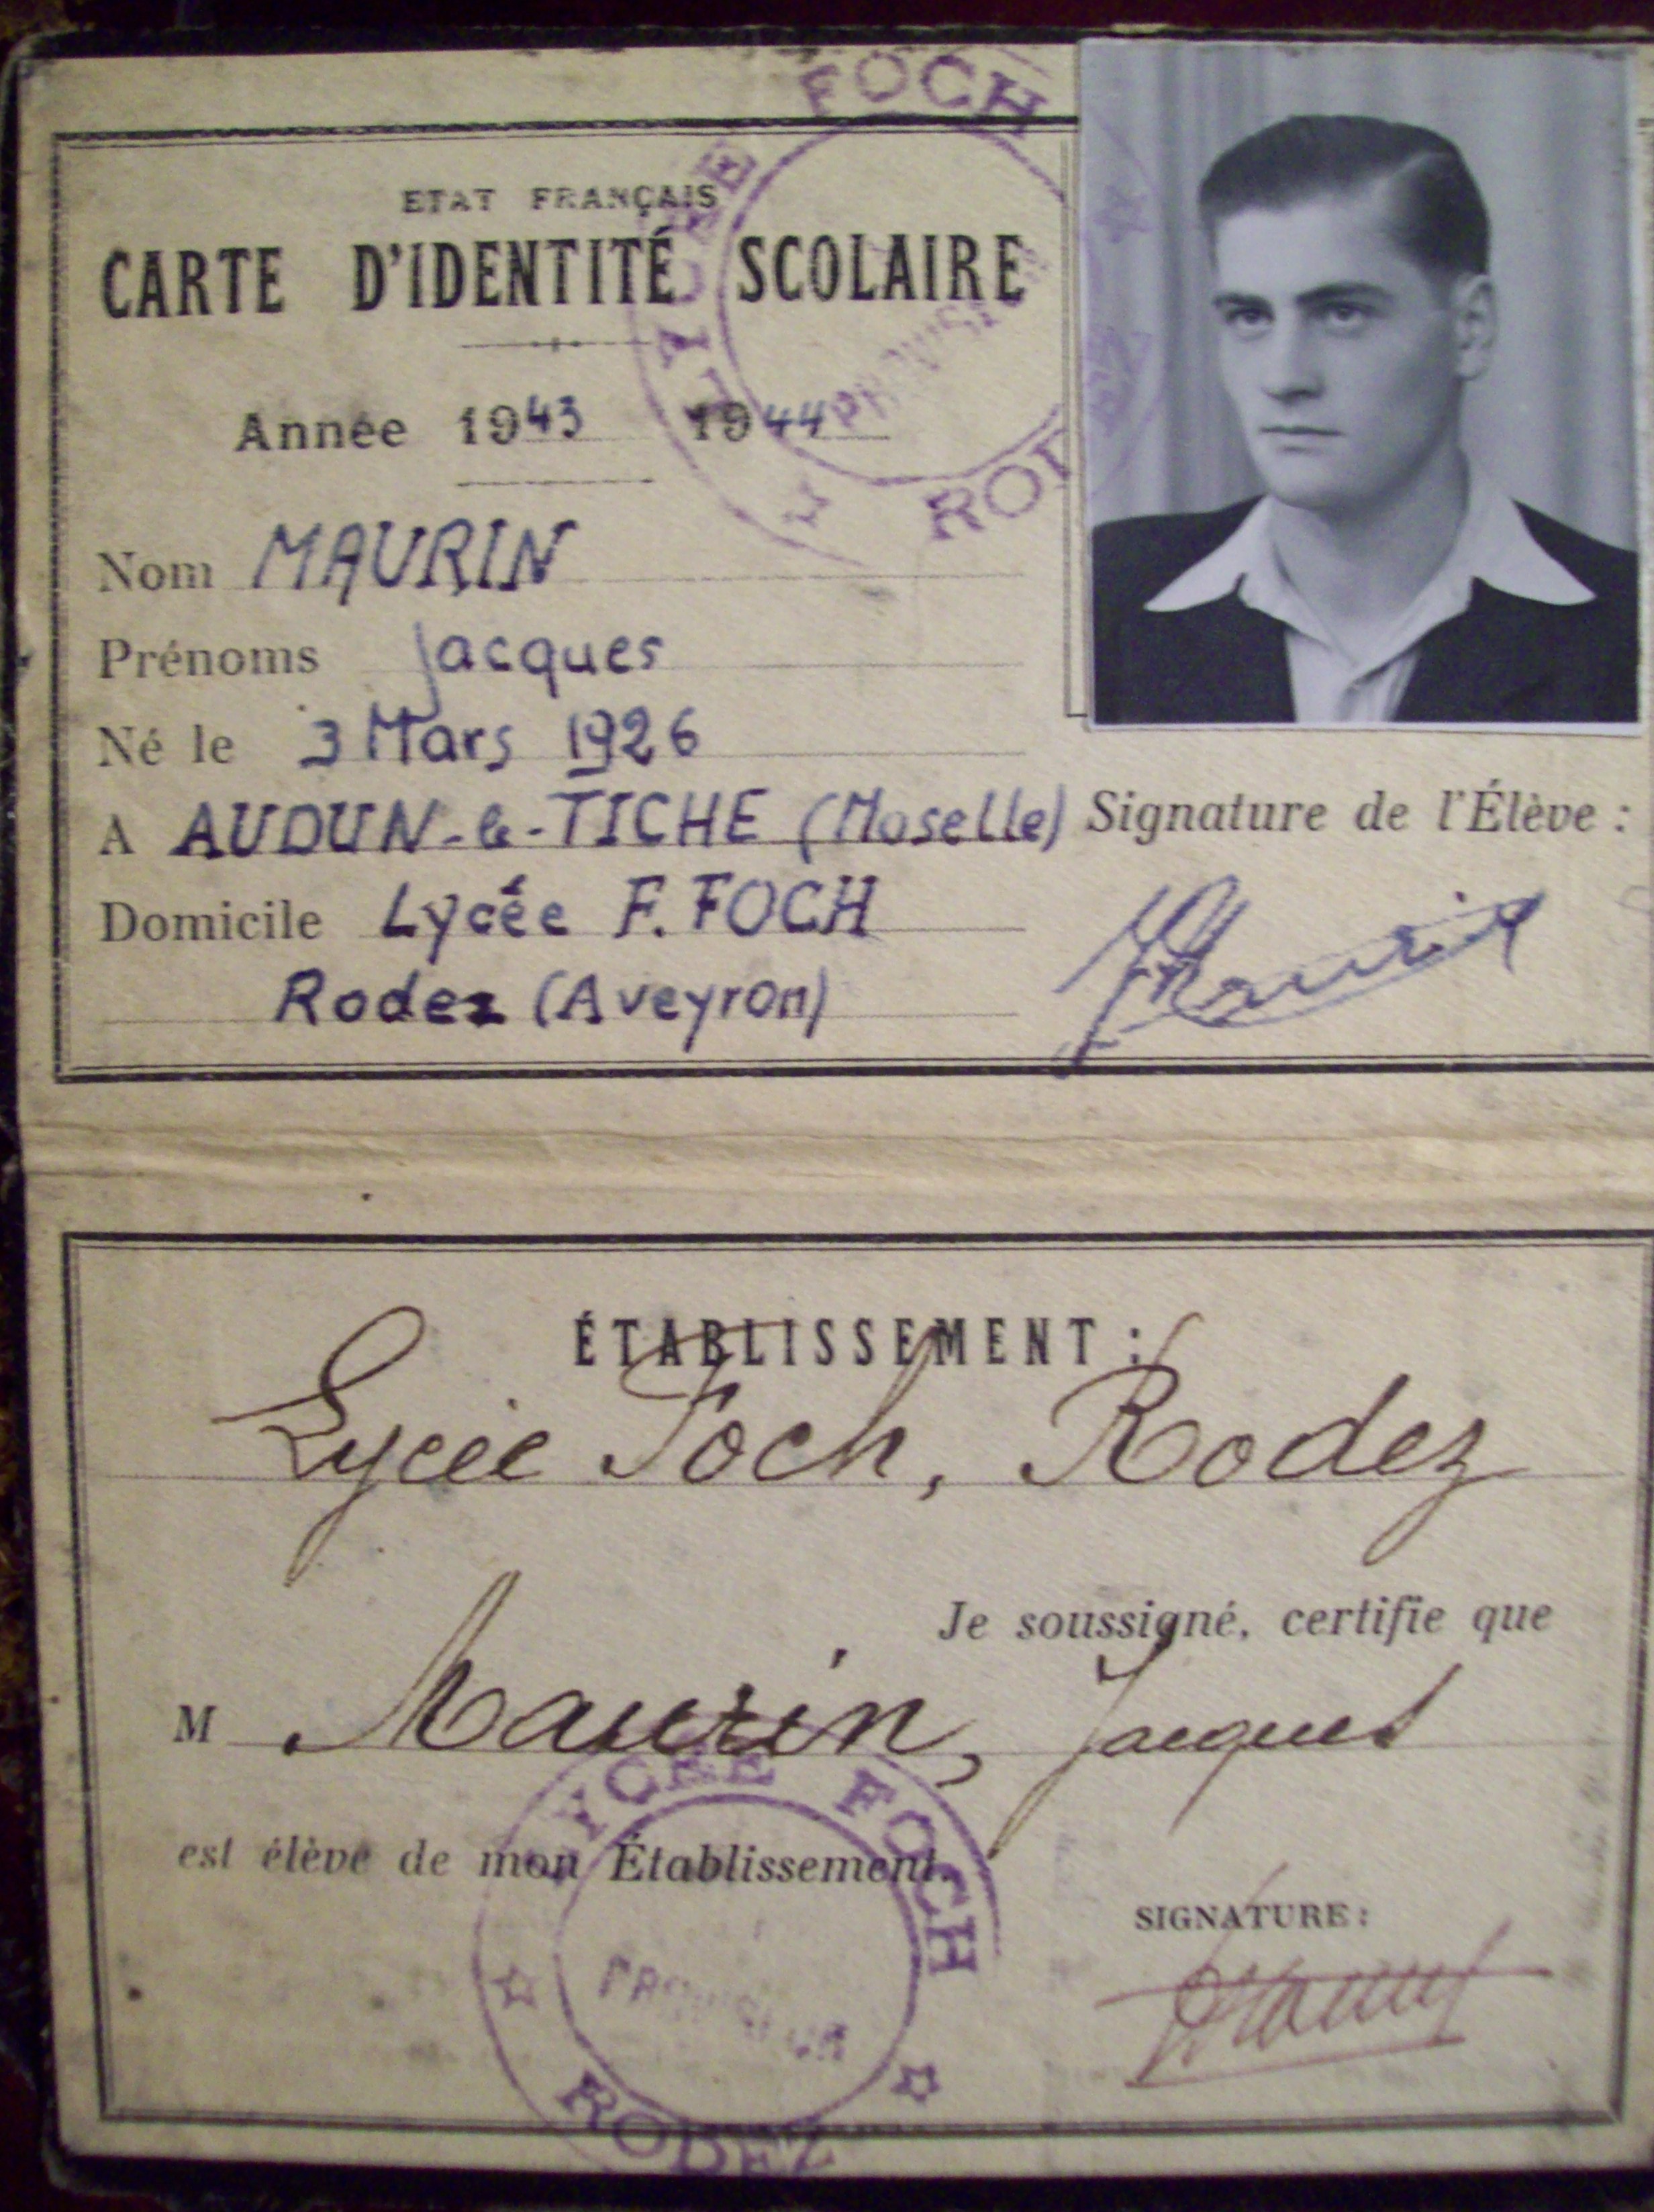 ETAT FRANÇAIS
CARTE D'IDENTITÉ SCOLAIRE
Année 1943 1944
Nom MAURIN
Prénoms Jacques
Né le 3 Mars 1926
A AUDUN-le-TICHE (Moselle)
Domicile Lycée F. FOCH
Rodez (Aveyron)
Signature de l'Élève :
JMaurin
LYCÉE FOCH
PROVISEUR
RODEZ
ÉTABLISSEMENT :
Lycée Foch, Rodez
Je soussigné, certifie que
M Maurin, Jacques
est élève de mon Établissement.
SIGNATURE :
LYCÉE FOCH
PROVISEUR
RODEZ